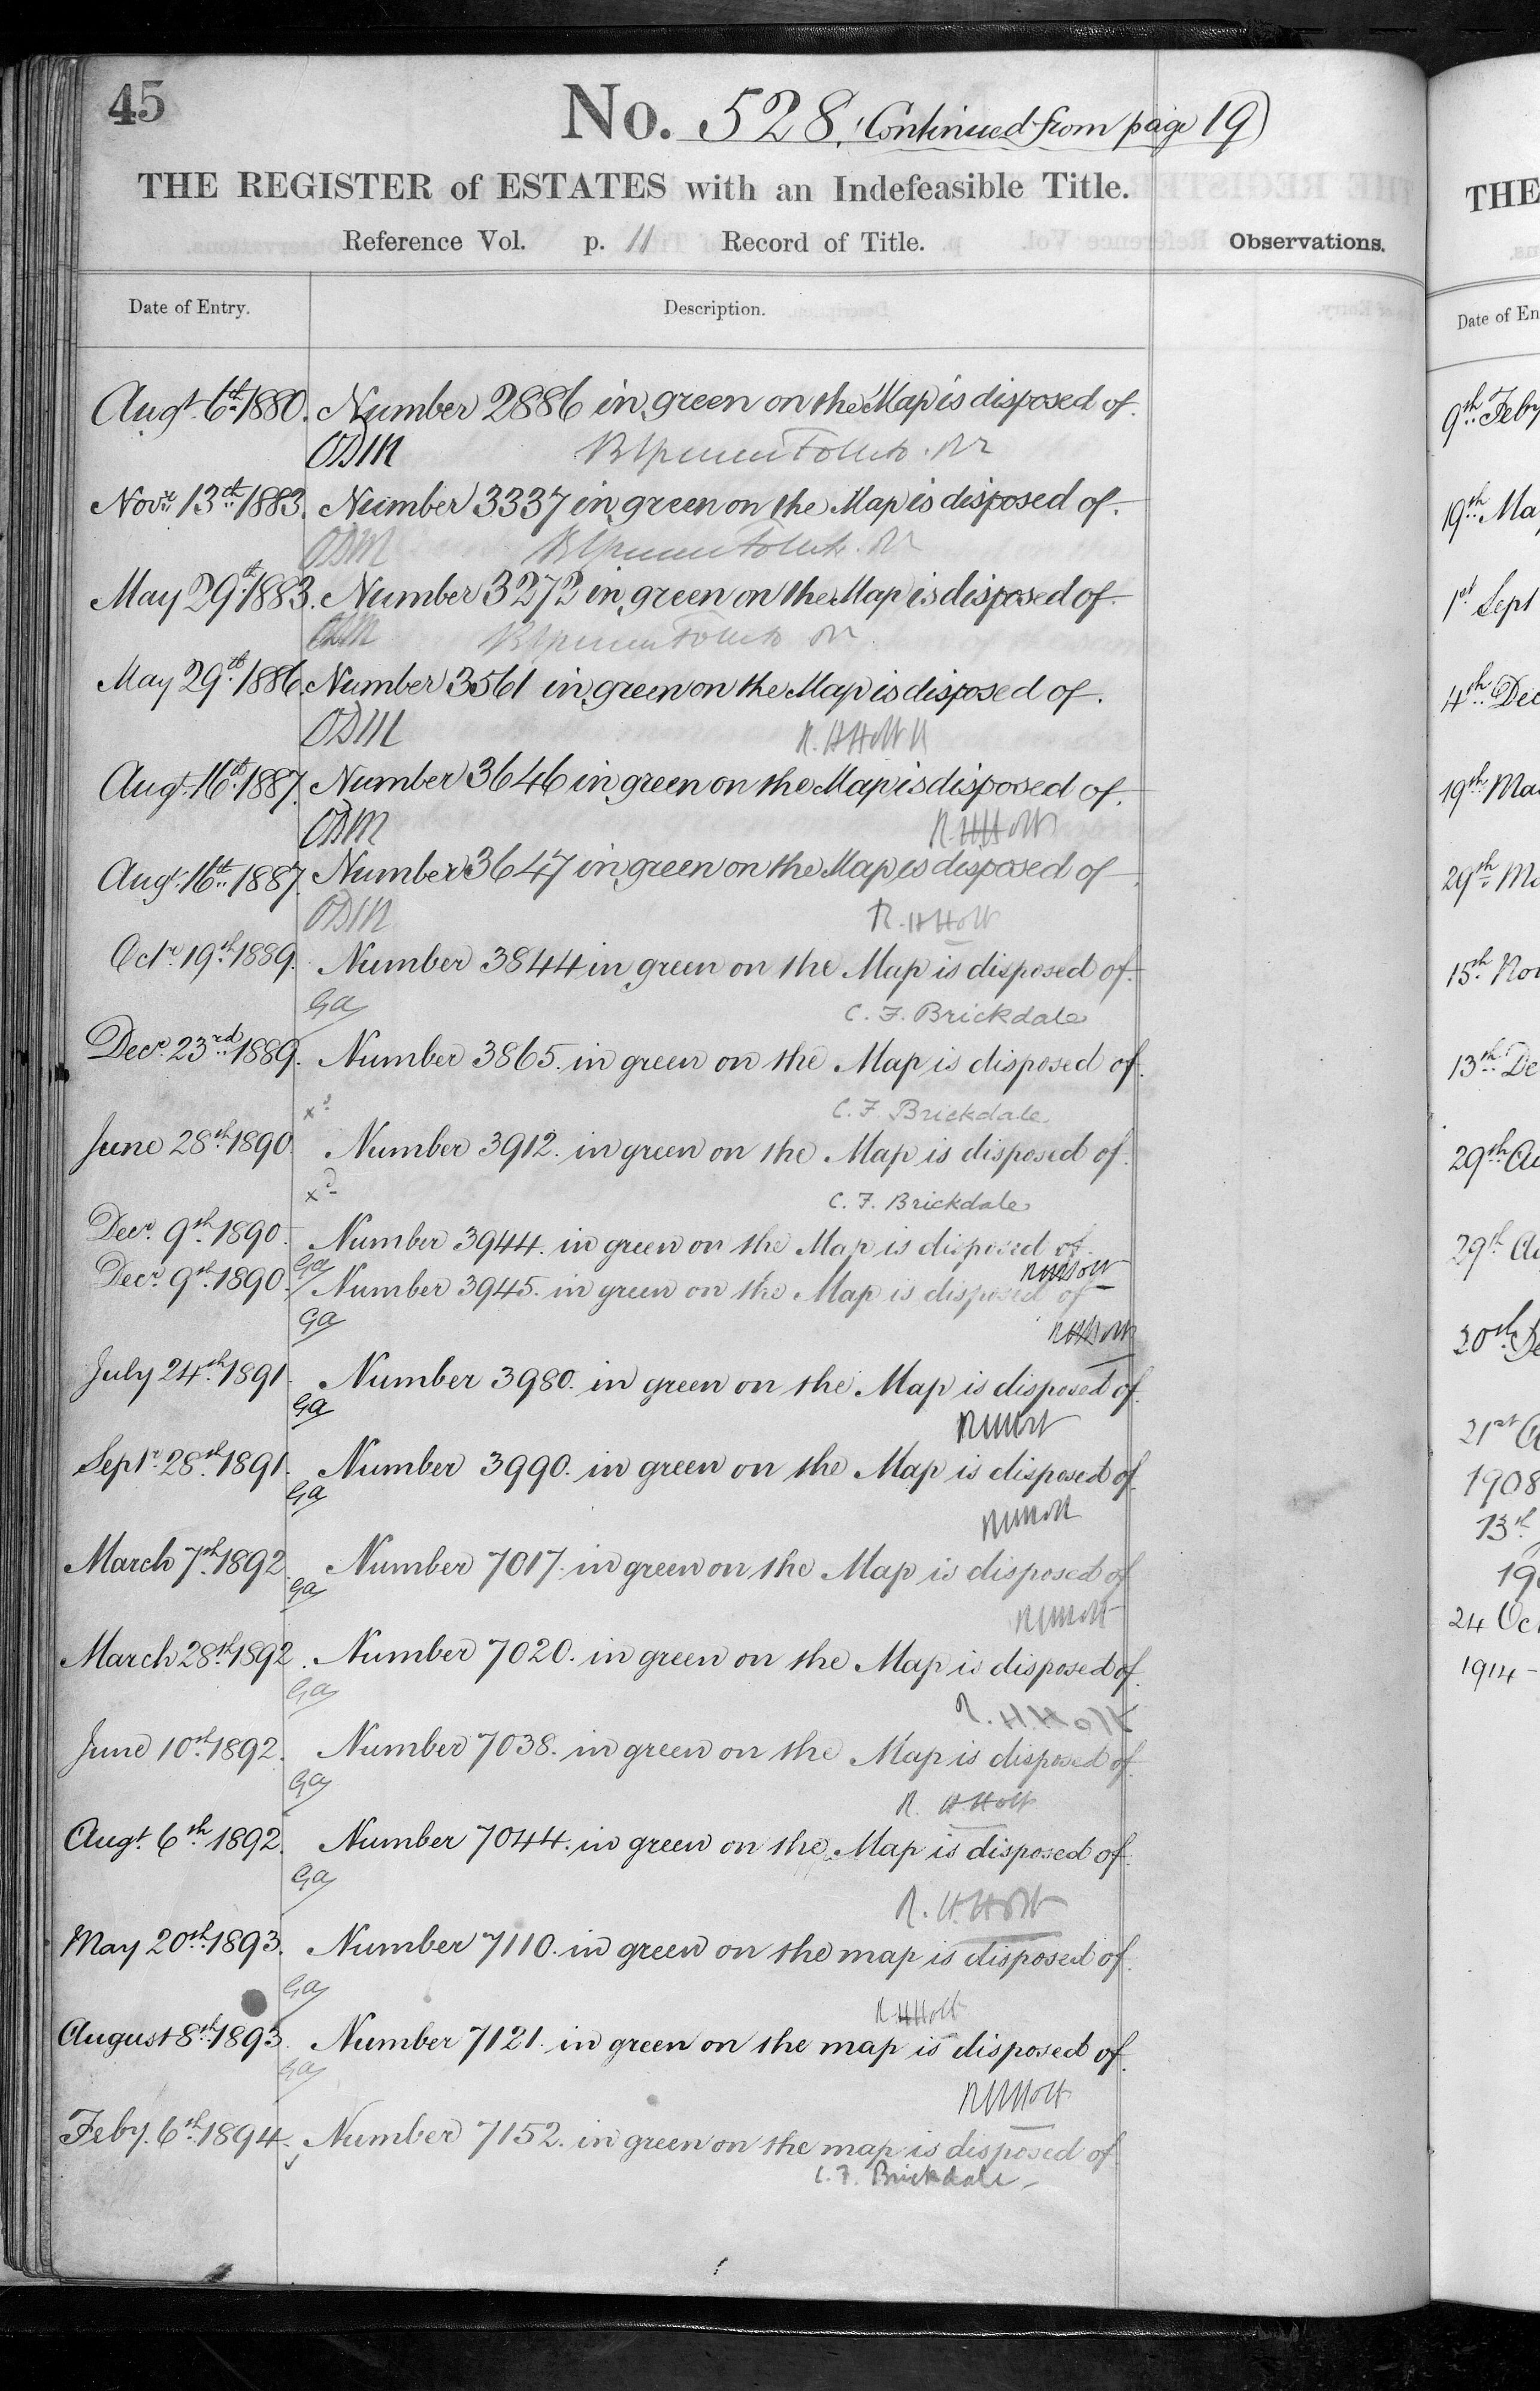 45
No. 528. (Continued from page 19)
THE REGISTER of ESTATES with an Indefeasible Title.
Reference Vol. p. 11 Record of Title.
Observations.
Date of Entry. Description.
Augt. 6th. 1880. Number 2886 in green on the Map is disposed of.
ODM
Novr. 13th. 1883. Number 3337 in green on the Map is disposed of.
ODM
May 29th. 1883. Number 3272 in green on the Map is disposed of.
ODM
May 29th. 1886. Number 3561 in green on the Map is disposed of.
ODM R. H Holt
Augt. 16th. 1887. Number 3646 in green on the Map is disposed of.
ODM R. H Holt
Augt. 16th. 1887. Number 3647 in green on the Map is disposed of.
ODM R. H Holt
Octr. 19th. 1889. Number 3844 in green on the Map is disposed of.
Ga C. F. Brickdale
Decr. 23rd. 1889. Number 3865. in green on the Map is disposed of.
C. F. Brickdale
June 28th. 1890. Number 3912. in green on the Map is disposed of.
C. F. Brickdale
Decr. 9th. 1890. Number 3944. in green on the Map is disposed of.
Ga R H Holt
Decr. 9th. 1890. Number 3945. in green on the Map is disposed of
Ga R H Holt
July 24th. 1891. Number 3980. in green on the Map is disposed of.
Ga R H Holt
Septr. 28th. 1891. Number 3990. in green on the Map is disposed of.
Ga R H Holt
March 7th. 1892. Number 7017. in green on the Map is disposed of
Ga R H Holt
March 28th. 1892. Number 7020. in green on the Map is disposed of.
Ga R. H. Holt
June 10th. 1892. Number 7038. in green on the Map is disposed of.
Ga R. H Holt
Augt. 6th. 1892. Number 7044. in green on the Map is disposed of.
Ga R. H. Holt
May 20th. 1893. Number 7110. in green on the map is disposed of.
Ga R. H Holt
August 8th. 1893. Number 7121. in green on the map is disposed of.
Ga R H Holt
Feby. 6th. 1894. Number 7152. in green on the map is disposed of.
C. F. Brickdale
THE
Date of En
9th. Feby
19th. Ma
1st Sept
4th. Dec
19th. Ma
29th. Ma
15th. Nov
13th. De
29th. Au
29th. Au
20th. De
21st
1908
13th
19
24 Oct
1914 -